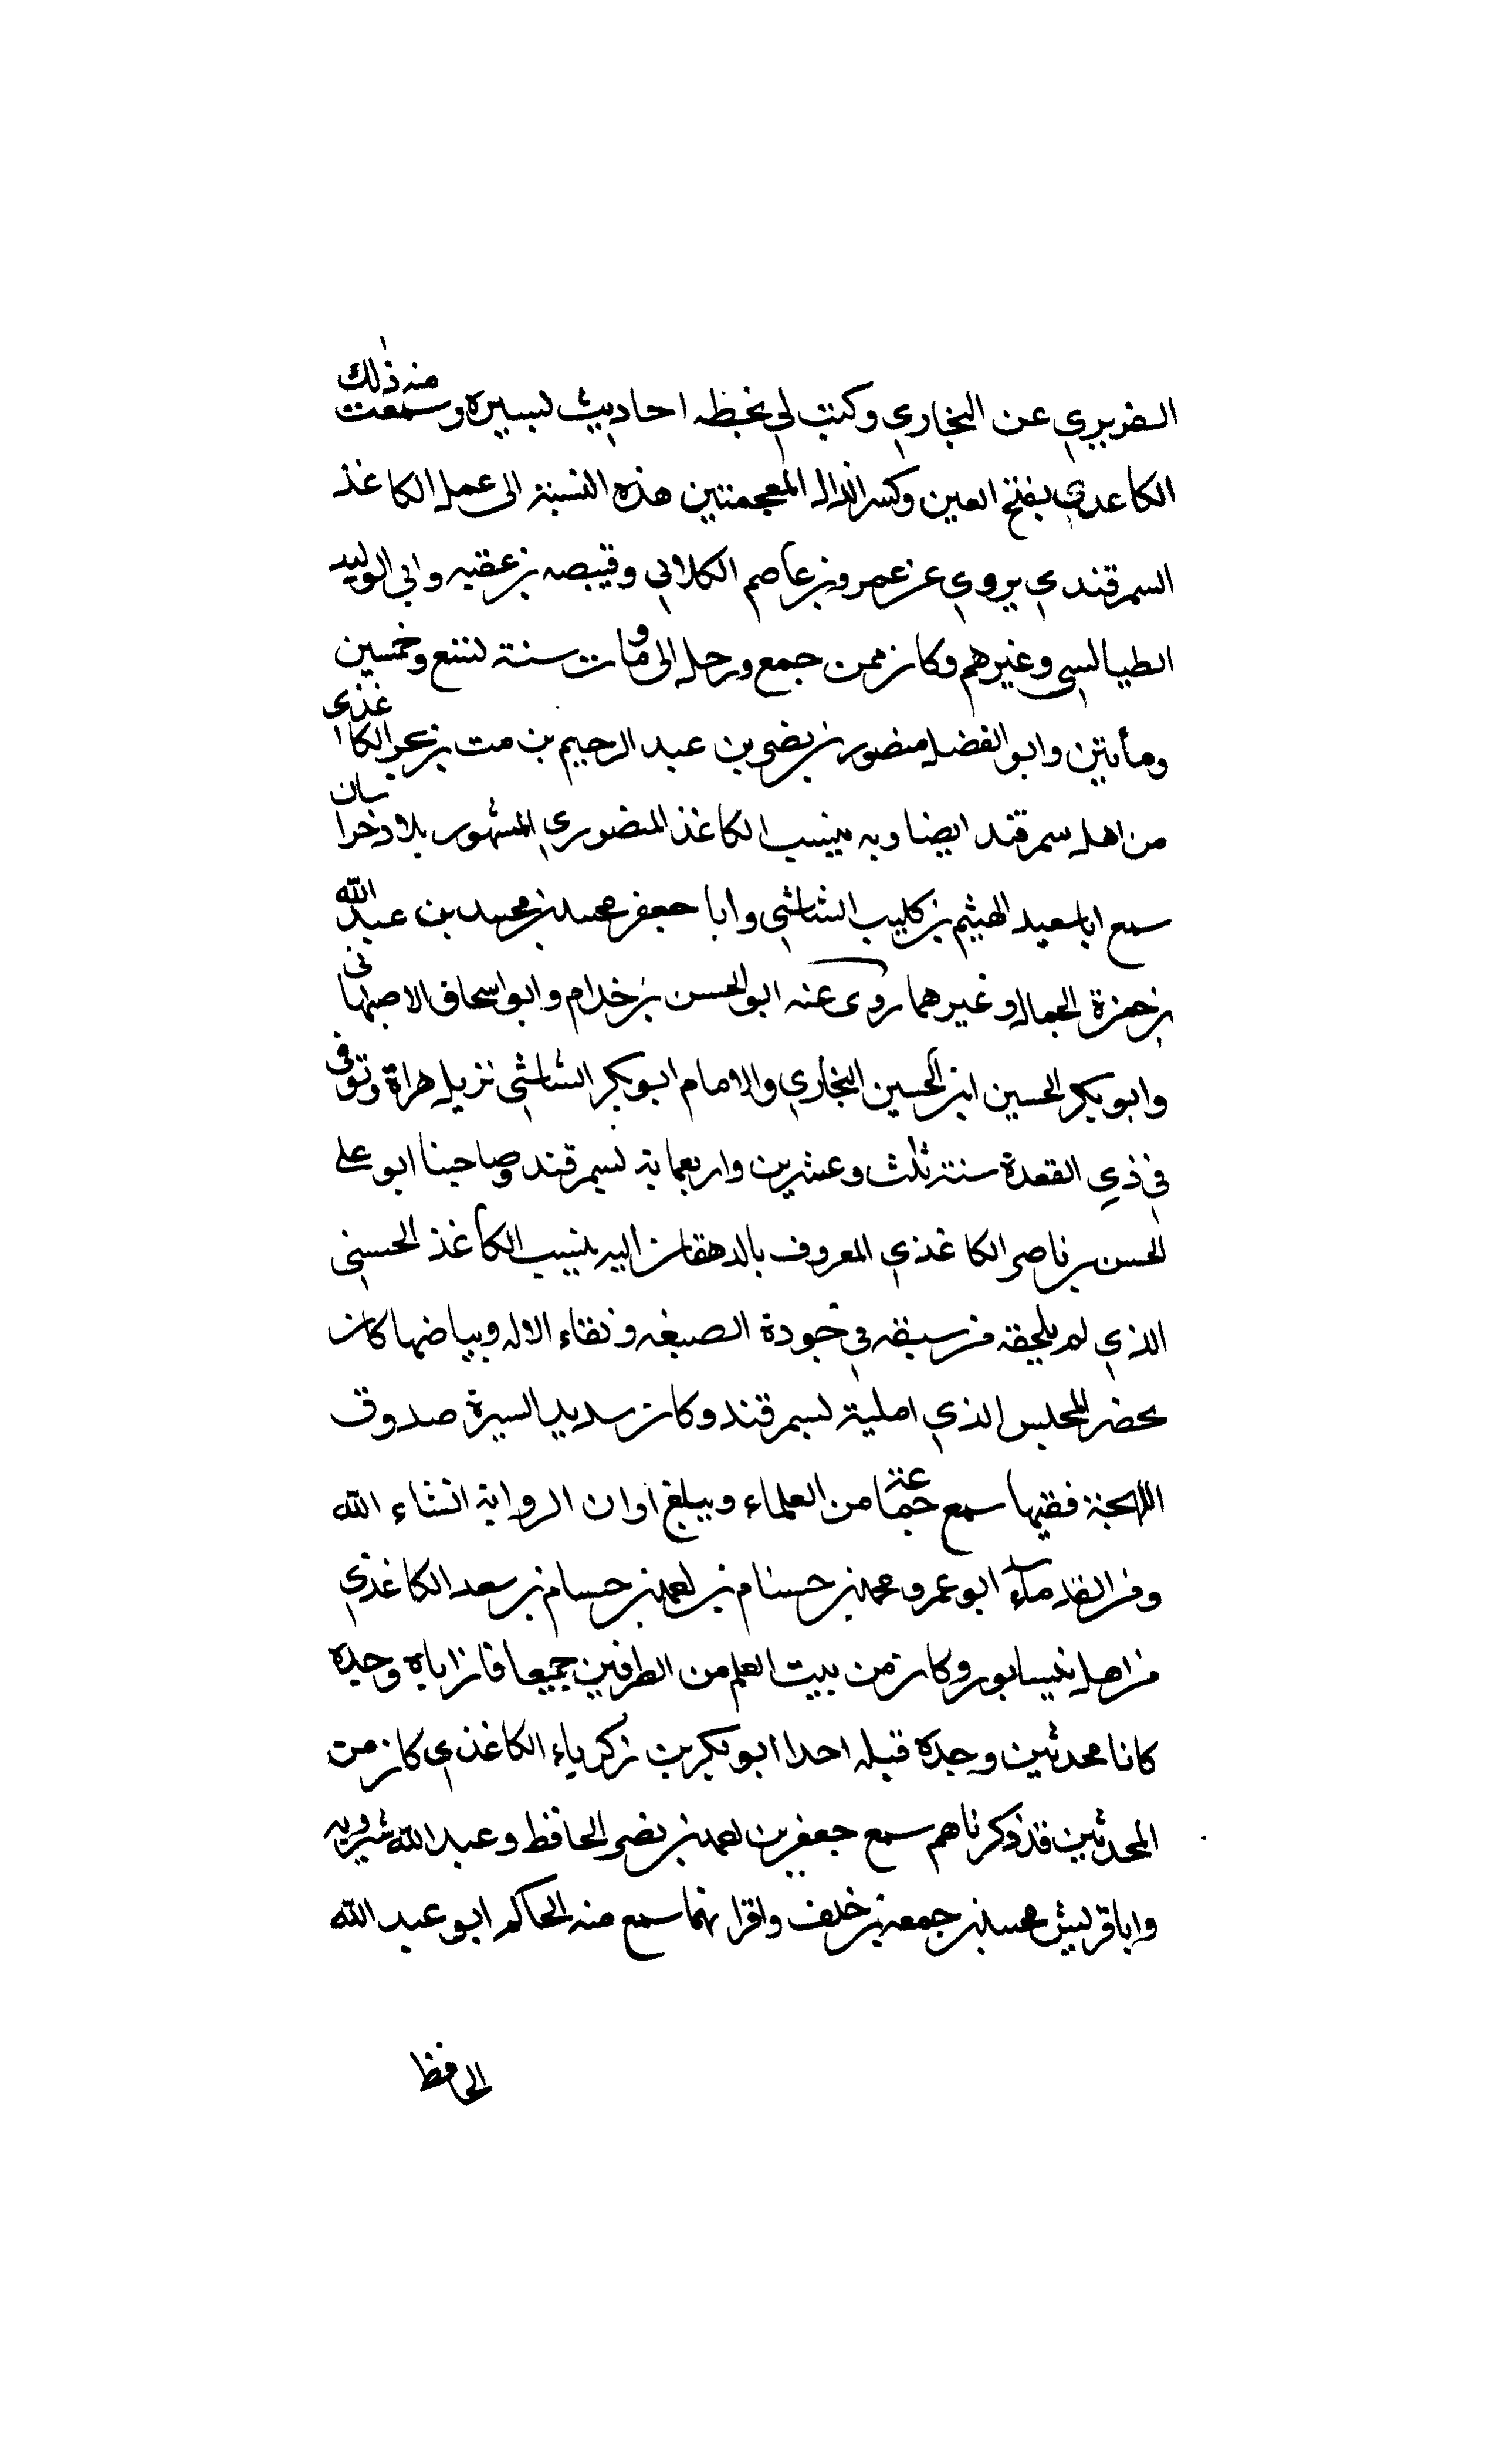 الفربري عن البخاري وكتب لي بخطه احاديث يسيره وسمعت منه ذلك
الكاعدي بفتح العين وكسر الذال المعجمتين هذه النسبة الى عمل الكاغذ
السمرقندي يروي عن عمرو بن عاصم الكلابي وقبيصه بن عقبه وابي الوليد
الطيالسي وغيرهم وكان ممن جمع ورحل الى ومات سنة تسع وخمسين
ومأتين وابو الفضل منصور بن نصر بن عبد الرحيم بن مت بن بحر الكاغذى
من اهل سمرقند ايضا وبه ينسب الكاغذ المنصوري المشهور بلاد خراسان
سمع ابا سعيد الهيثم بن كليب الشاشي وابا جعفر محمد بن محمد بن عبد الله
بن حمزة الجمال وغيرهما روى عنه ابو الحسن بن خدام وابو اسحاق الاصبهانى
وابو بكر الحسين ابن الحسين البخاري والامام ابو بكر الشاشي نزيل هراة وتوفى
في ذي القعدة سنة ثلث وعشرين واربعماية بسمرقند وصاحبنا ابو على
الحسن بن ناصر الكاغذي المعروف بالدهقان اليه ينسب الكاغذ الحسني
الذي لم يلحقه من سبقه في جودة الصنعه ونقاء الاله وبياضها كان
يحضر المجلس الذي امليته بسمرقند وكان سديد السيرة صدوق
اللهجة فقيها سمع جماعة من العلماء ويبلغ اوان الرواية انشاء الله
ومن القدماء ابو عمرو محمد بن حسنام بن احمد بن حسام بن سعد الكاغذي
من اهل نيسابور وكان من بيت العلم من الطرفين جميعا فان اباه وجده
كانا محدثين وجده قبله احدا ابو بكر بن زكرياء الكاغذي كان من
المحدثين قد ذكرناهم سمع جعفر بن احمد بن نصر الحافظ وعبد الله شيرويه
وابا قريش محمد بن جمعه بن خلف واقرانهما سمع منه الحاكم ابو عبد الله
الحافظ